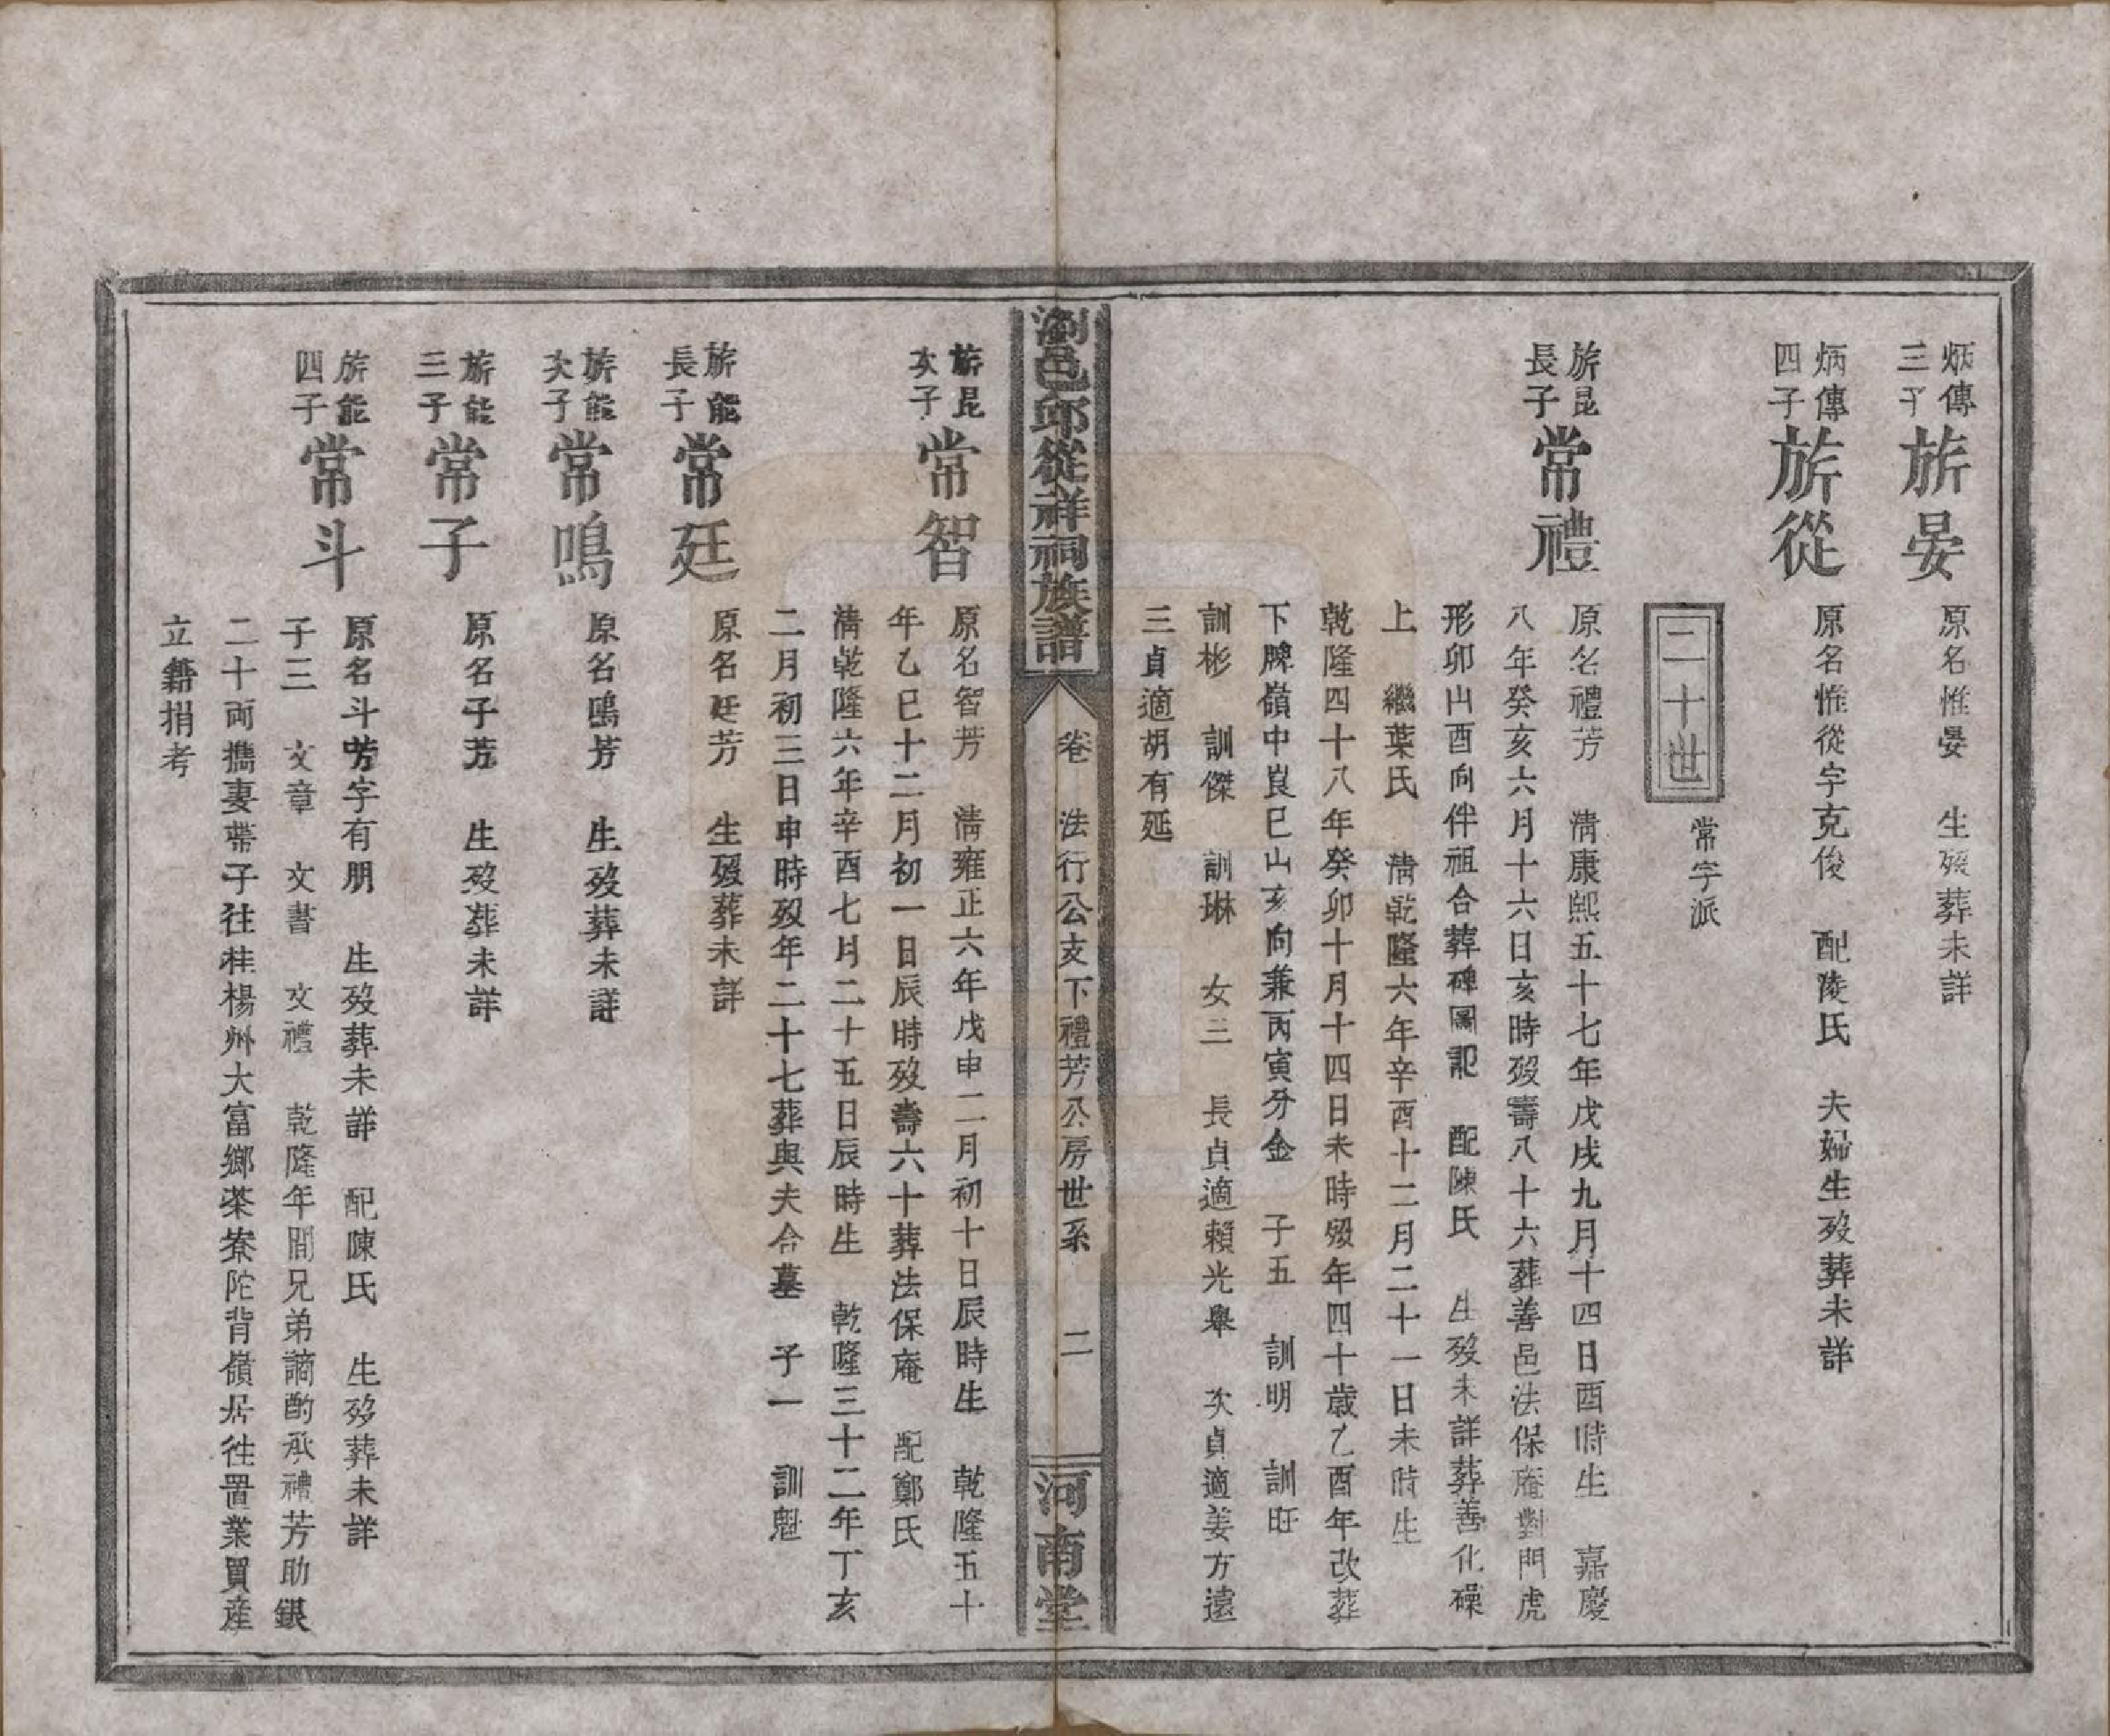 炳傳
三子
旂晏
原名惟晏　生歿葬未詳
炳傳
四子
旂從
原名惟從字克俊　配陵氏　夫婦生歿葬未詳
二十世
常字派
旂昆
長子
常禮
原名禮芳　清康熙五十七年戊戌九月十四日酉時生　嘉慶
八年癸亥六月十六日亥時歿壽八十六葬善邑法保庵對門虎
形卯山酉向伴祖合葬碑圖記　配陳氏　生歿未詳葬善化磜
上　繼葉氏　清乾隆六年辛酉十二月二十一日未時生
乾隆四十八年癸卯十月十四日未時歿年四十歲乙酉年改葬
下牌嶺中艮巳山亥向兼丙寅分金　子五　訓明　訓旺
訓彬　訓傑　訓琳　女三　長貞適賴光舉　次貞適姜方遠
三貞適胡有延
瀏邑邱從祥祠族譜
卷　法行公支下禮芳公房世系　二
河南堂
旂昆
次子
常智
原名智芳　清雍正六年戊申二月初十日辰時生　乾隆五十
年乙巳十二月初一日辰時歿壽六十葬法保庵　配鄭氏
清乾隆六年辛酉七月二十五日辰時生　乾隆三十二年丁亥
二月初三日申時歿年二十七葬與夫合墓　子一　訓魁
旂能
長子
常廷
原名廷芳　生歿葬未詳
旂能
次子
常鳴
原名鳴芳　生歿葬未詳
旂能
三子
常子
原名子芳　生歿葬未詳
旂能
四子
常斗
原名斗芳字有朋　生歿葬未詳　配陳氏　生歿葬未詳
子三　文章　文書　文禮　乾隆年間兄弟謫酌承禮芳助銀
二十両攜妻帶子往桂楊州大富鄉茶寮陀背嶺居住置業買産
立籍捐考